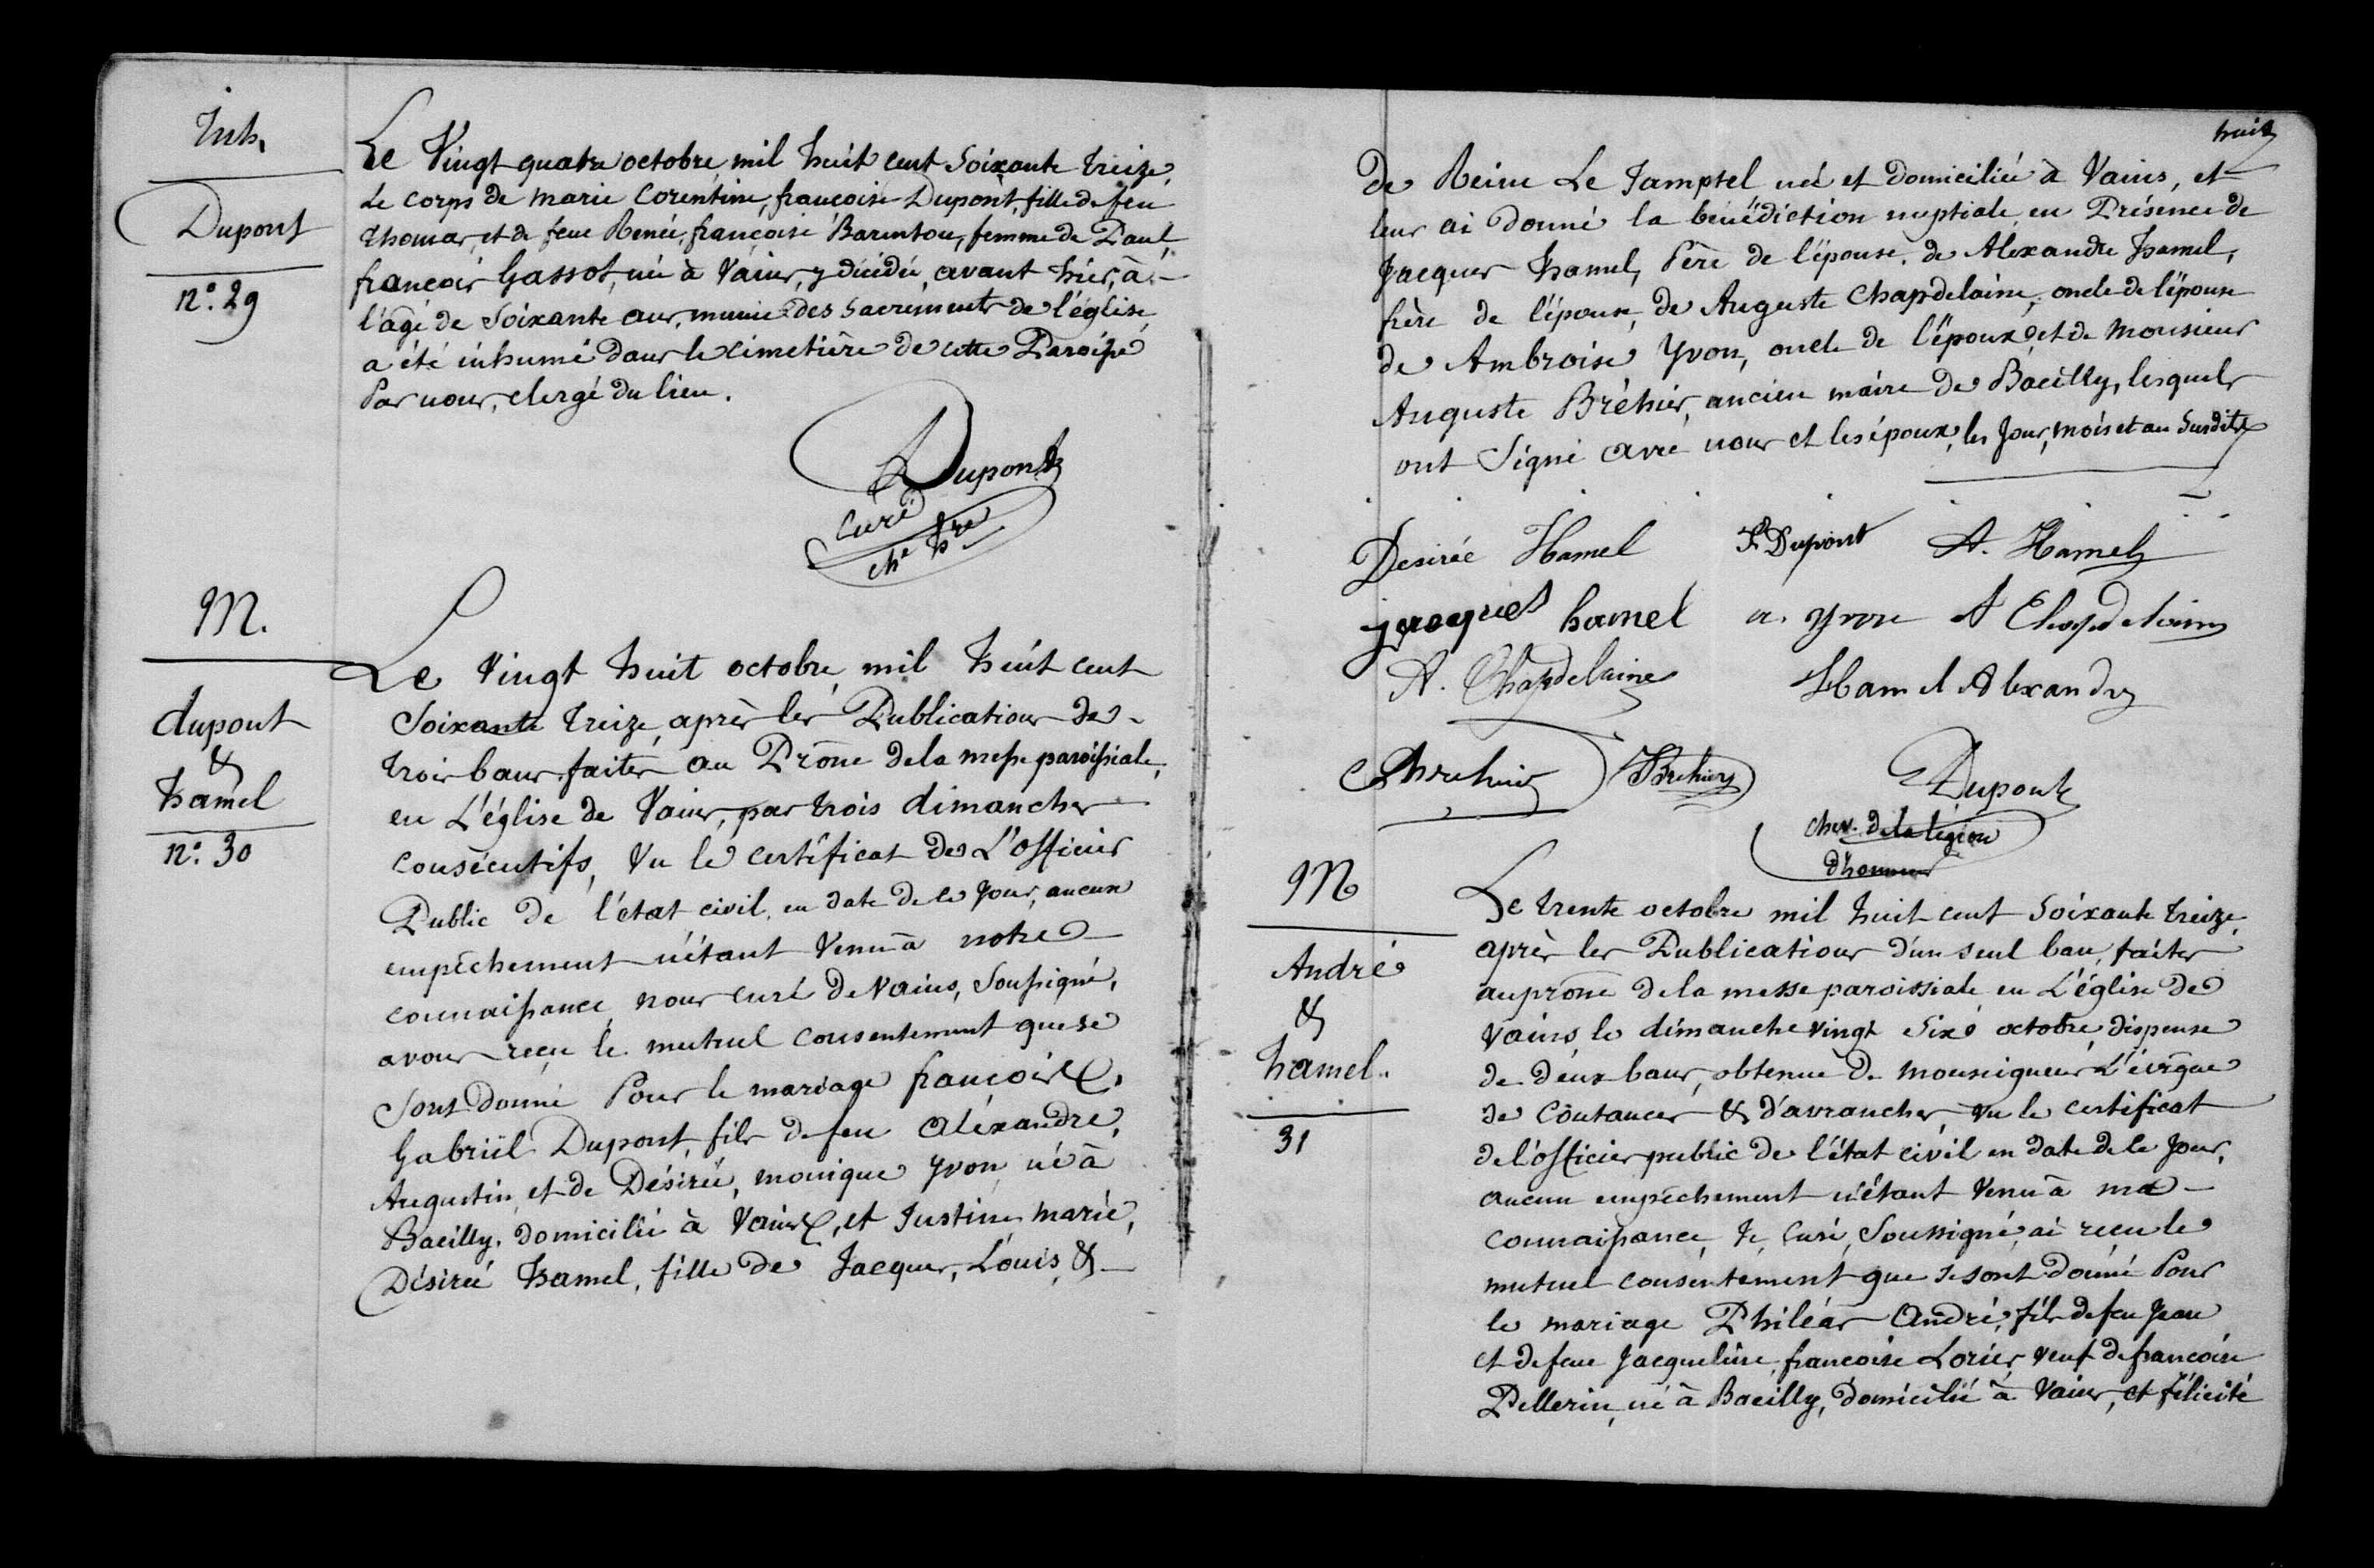 Inh.
Dupont
n°. 29
Le Vingt quatre octobre mil huit cent soixante treize,
Le corps de marie corentine, françoise Dupont, fille de feu
thomas, et de feue Renée, françoise Barenton, femme de Paul,
françois Gassot, née à Vains, y décédée, avant hier, à
l'âge de soixante ans, munie des sacrements de l'église,
a été inhumé dans le cimetière de cette Paroisse
Par nous, clergé du lieu.
Dupont
curé
M.
dupont
&
hamel
n°. 30
Le Vingt huit octobre mil huit cent
Soixante treize, après les Publications de
trois bans, faites au Prône de la messe paroissiale,
en L'église de Vains, par trois dimanches
consécutifs, Vu le certificat de L'officier
Public de l'état civil, en date de ce Jour, aucun
empêchement n'étant Venu à notre
connaissance, nous curé de Vains, Soussigné,
avons reçu le mutuel consentement que se
Sont donné Pour le mariage françois,
Gabriël Dupont, fils de feu Aléxandre,
Augustin, et de Désirée, monique Yvon, né à
Bacilly, domicilié à Vains, et Justine marie,
Désirée hamel, fille de Jacques, Louis, &
huit
de Reine Le Jamptel née et domiciliée à Vains, et
leur ai donné la bénédiction nuptiale, en Présence de
Jacques hamel, Père de l'épouse, de Alexandre hamel,
frère de l'épouse, de Auguste Chapdelaine, oncle de l'épouse
de Ambroise Yvon, oncle de l'époux, et de Monsieur
Auguste Bréhier, ancien maire de Bacilly, lesquels
ont Signé avec nous et les époux, les Jour, mois et an Susdits
Desirée Hamel F. Dupont A. Hamel
jacques hamel a. yvon A Chapdelaine
A. Chapdelaine Hamel Alexandre
ABrehier Brehier Dupont
chev. de la légion
d'honneur
M
André
&
hamel.
31
Le trente octobre mil huit cent soixante treize,
après les Publications d'un seul ban, faites
au prône de la messe paroissiale en L'église de
Vains, le dimanche vingt six octobre, dispense
de deux bans, obtenue de monseigneur L'évêque
de Coutances & d'avranches, vu le certificat
de l'officier public de l'état civil en date de ce Jour,
aucun empêchement n'étant Venu à ma
connaissance, Je, curé, Soussigné, ai reçu le
mutuel consentement que se sont donné Pour
le mariage Philéas André, fils de feu Jean
et de feue Jacqueline, françoise Lorier, veuf de françoise
Pellerin, né à Bacilly, domicilié à Vains, et félicité